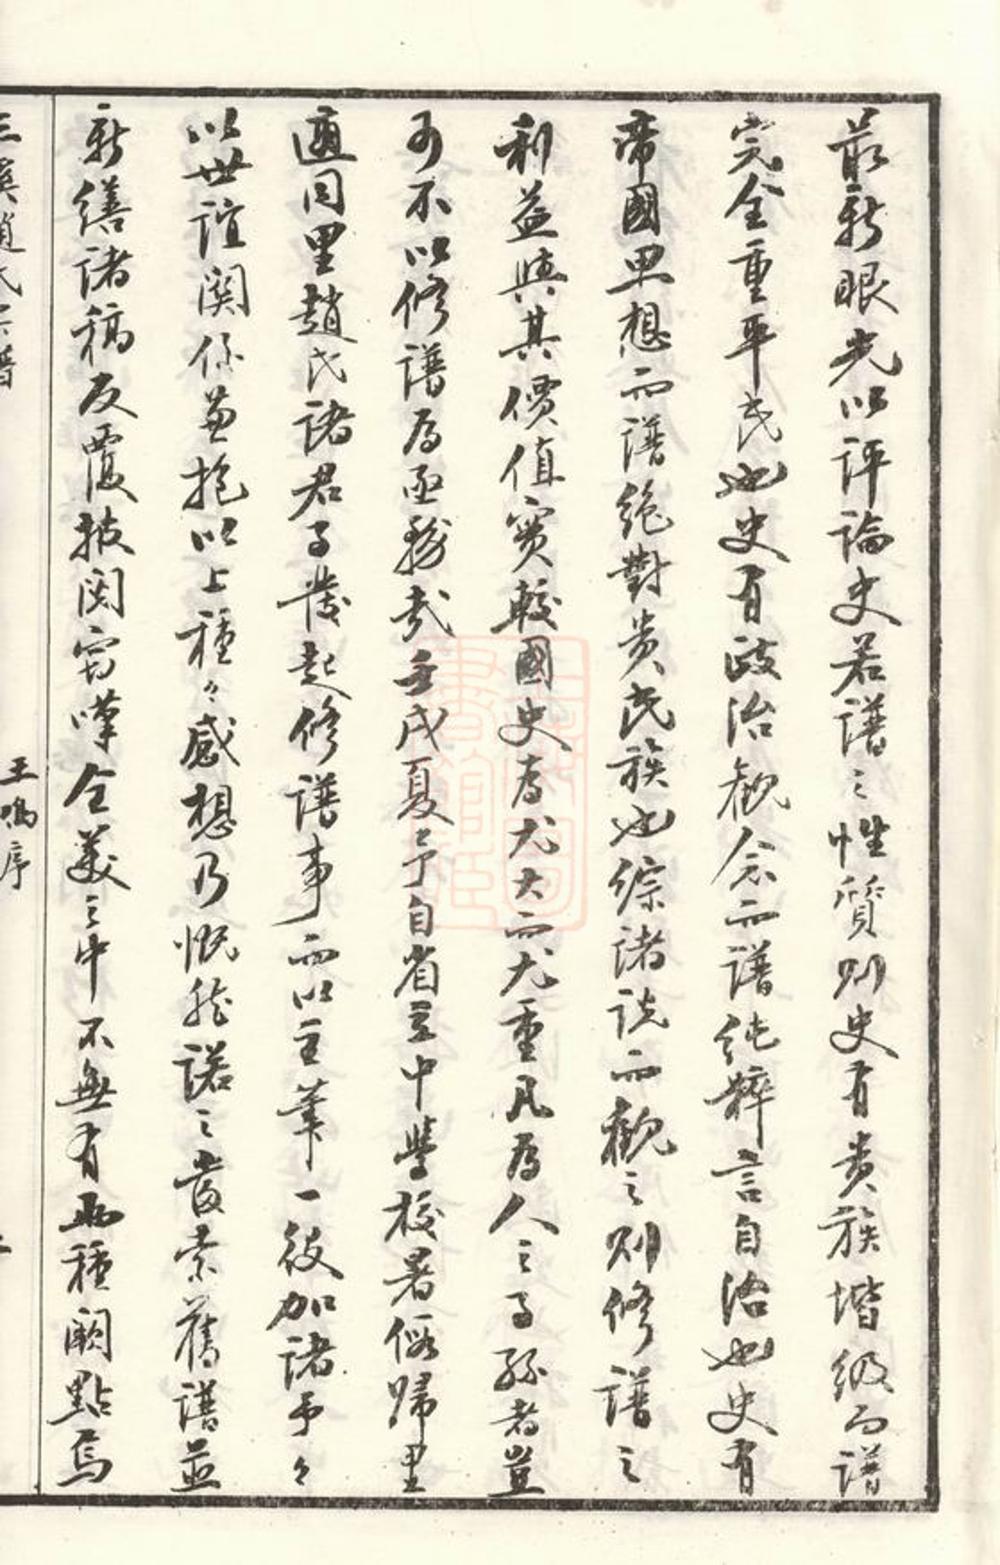 最新眼光以評論史若譜之性質則史有貴族堦級而譜
完全重平民也史有政治觀念而譜純粹言自治也史有
帝國思想而譜絶對貴民族也綜諸説而觀之則修譜之
利益與其價值實較國史爲尤大而尤重凡爲人之子孫者豈
可不以修譜爲亟務哉壬戌夏予自省立中學校暑假歸里
適同里趙氏諸君子發起修譜事而以主筆一役加諸予々
以世誼關係兼抱以上種々感想乃慨然諾之爰索舊譜並
新繕諸稿反覆披閲竊嘆全美之中不無有兩種闕點焉
三溪趙氏宗譜
王 序
上海圖書館藏